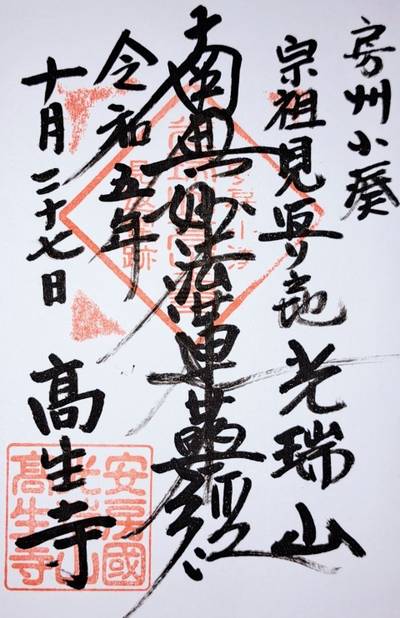 房州小湊
宗祖見返り地 光瑞山
南無妙法蓮華経
令和五年
十月二十七日
高生寺
安房國
光瑞山
高生寺